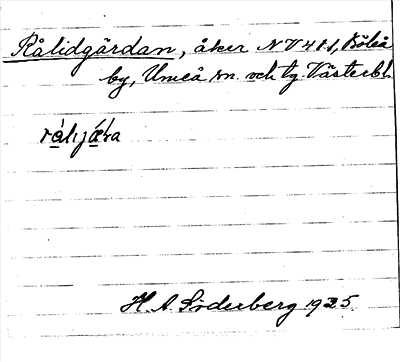 Rålidgärdan, åker NV 4 1:1, Böleå
by, Umeå sn. och tg. Västerbl.
H. A. Söderberg 1925.